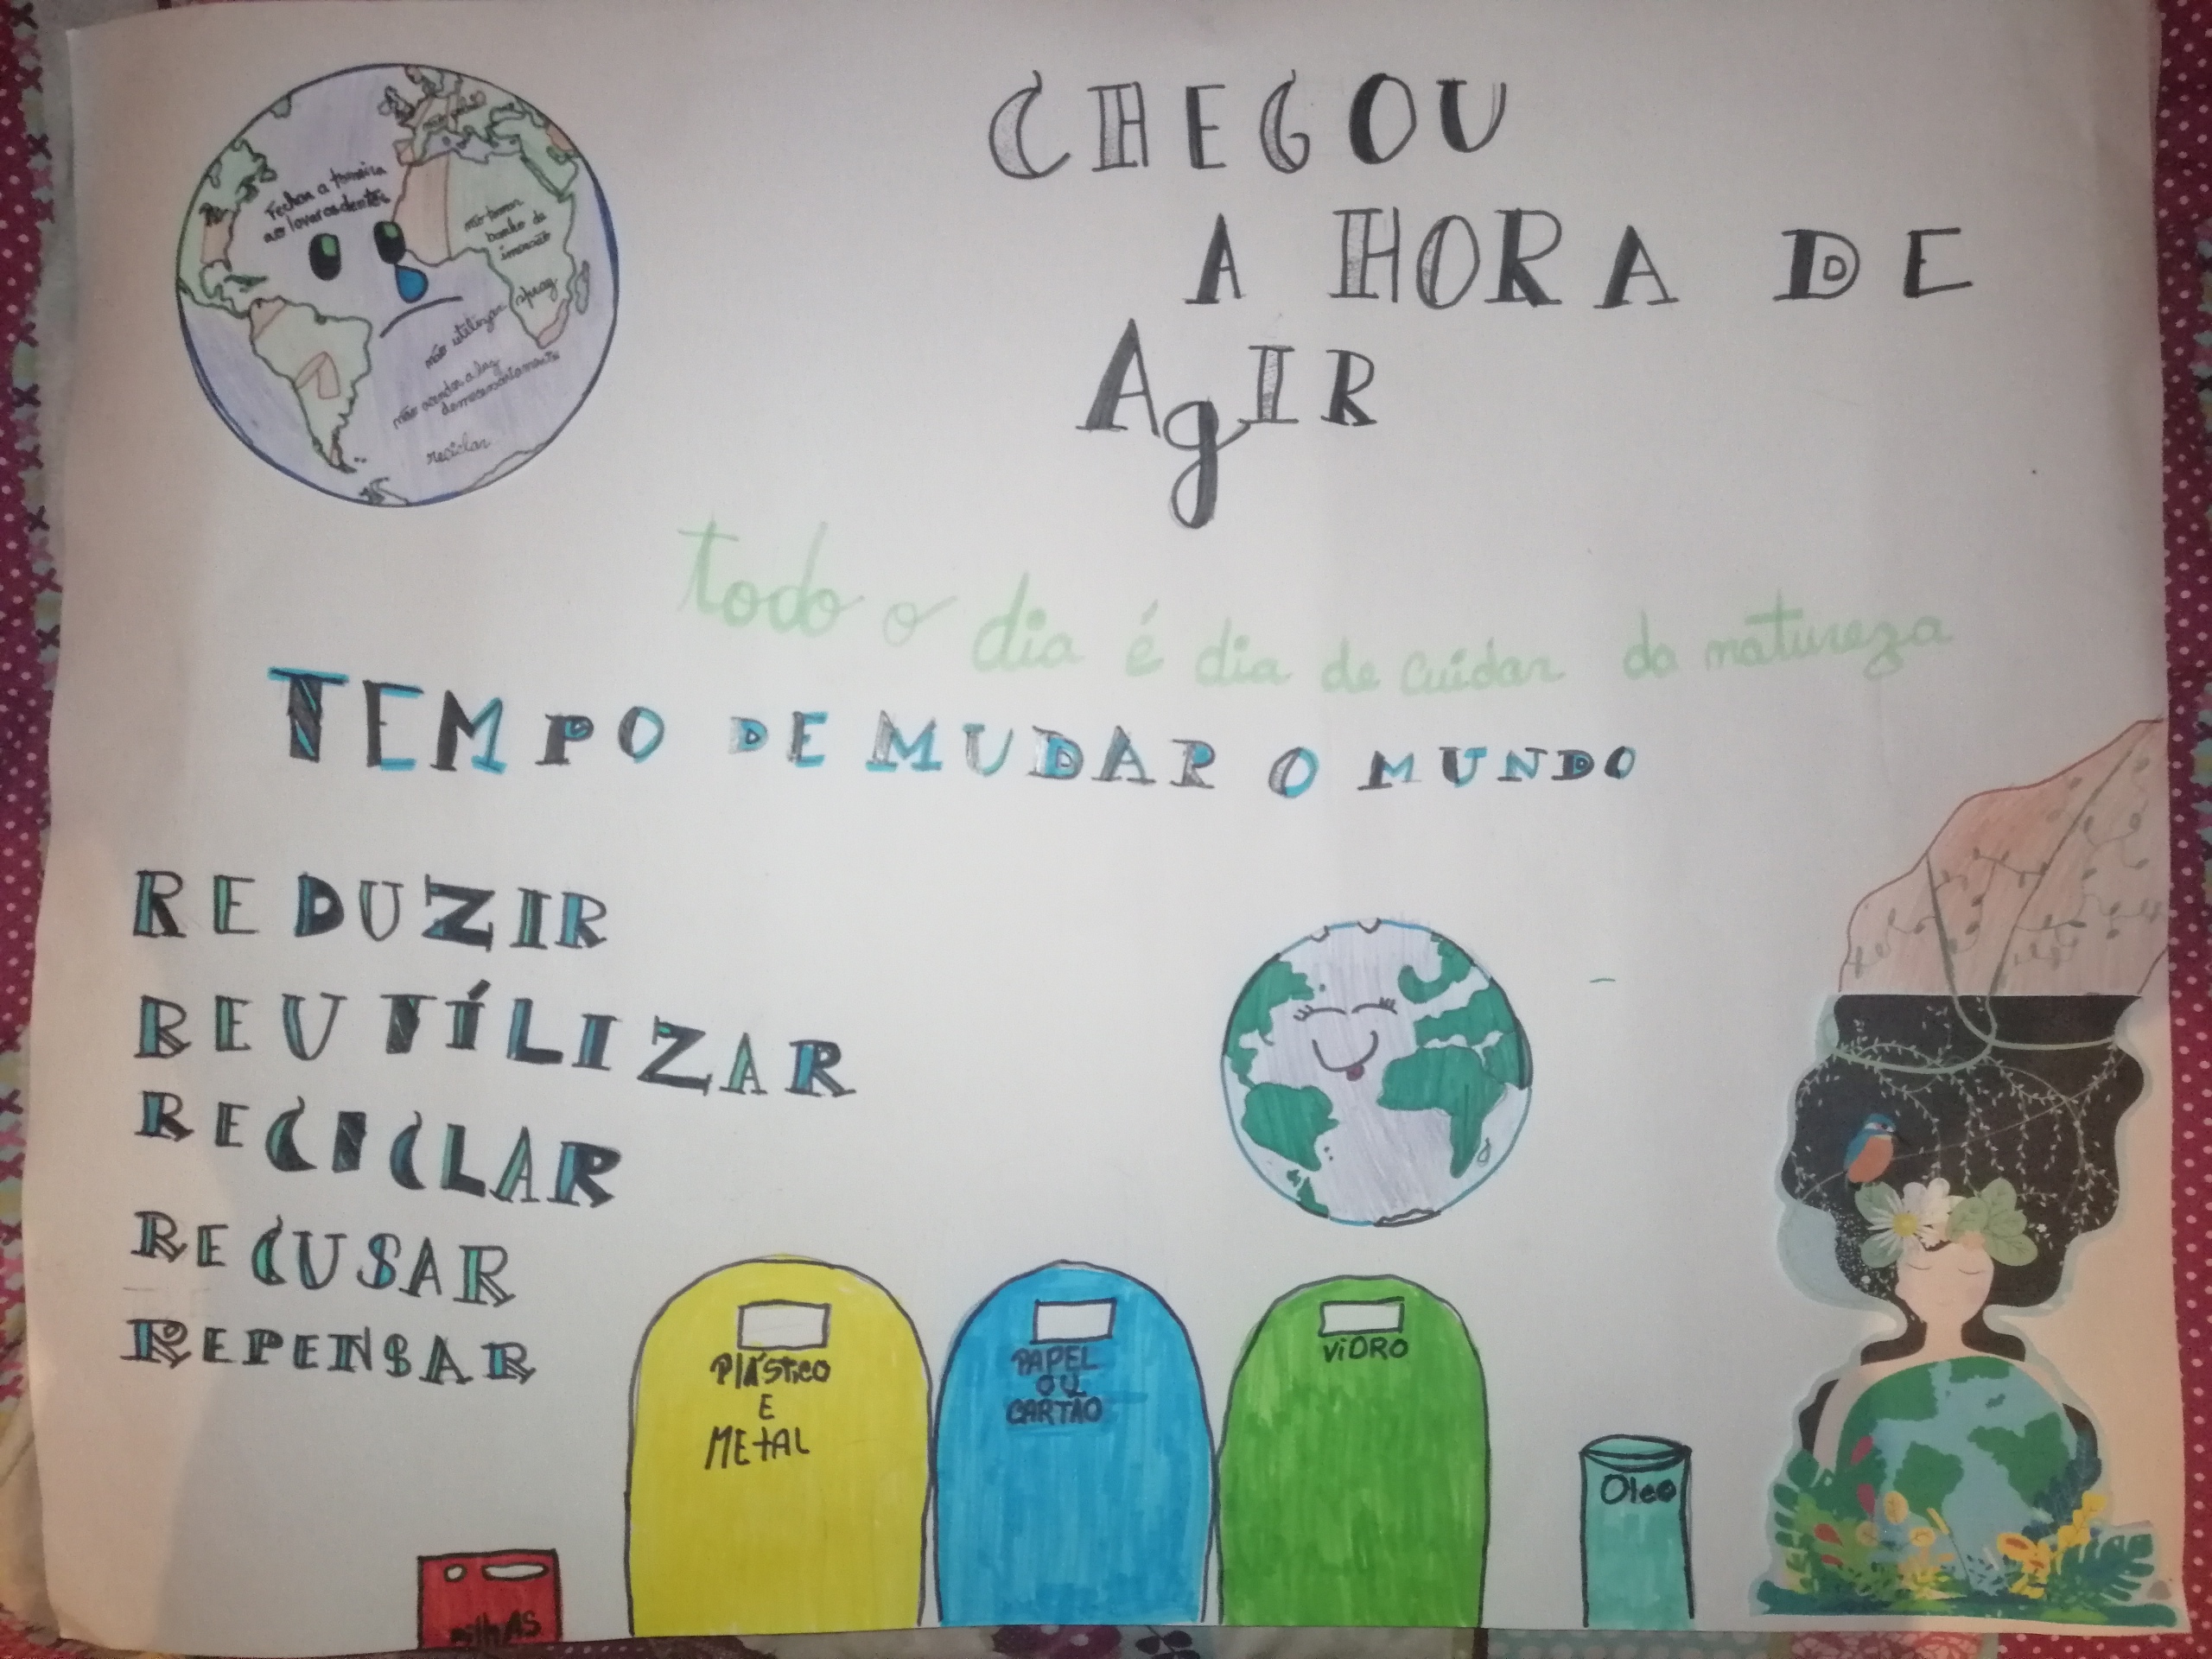 CHEGOU
A HORA DE
AgIR
Fechar a torneira
ao lavar os dentes
não tomar
banho de
imersão
não utilizar spray
não acender a luz
desnecessariamente
reciclar
todo o dia é dia de cuidar da natureza
TEMPO DE MUDAR O MUNDO
REDUZIR
REUTÍLIZAR
RECICLAR
RECUSAR
REPENSAR
PláStico
E
MEtAL
PAPEL
OU
CARTÃO
ViDRO
Oleo
pilhAS